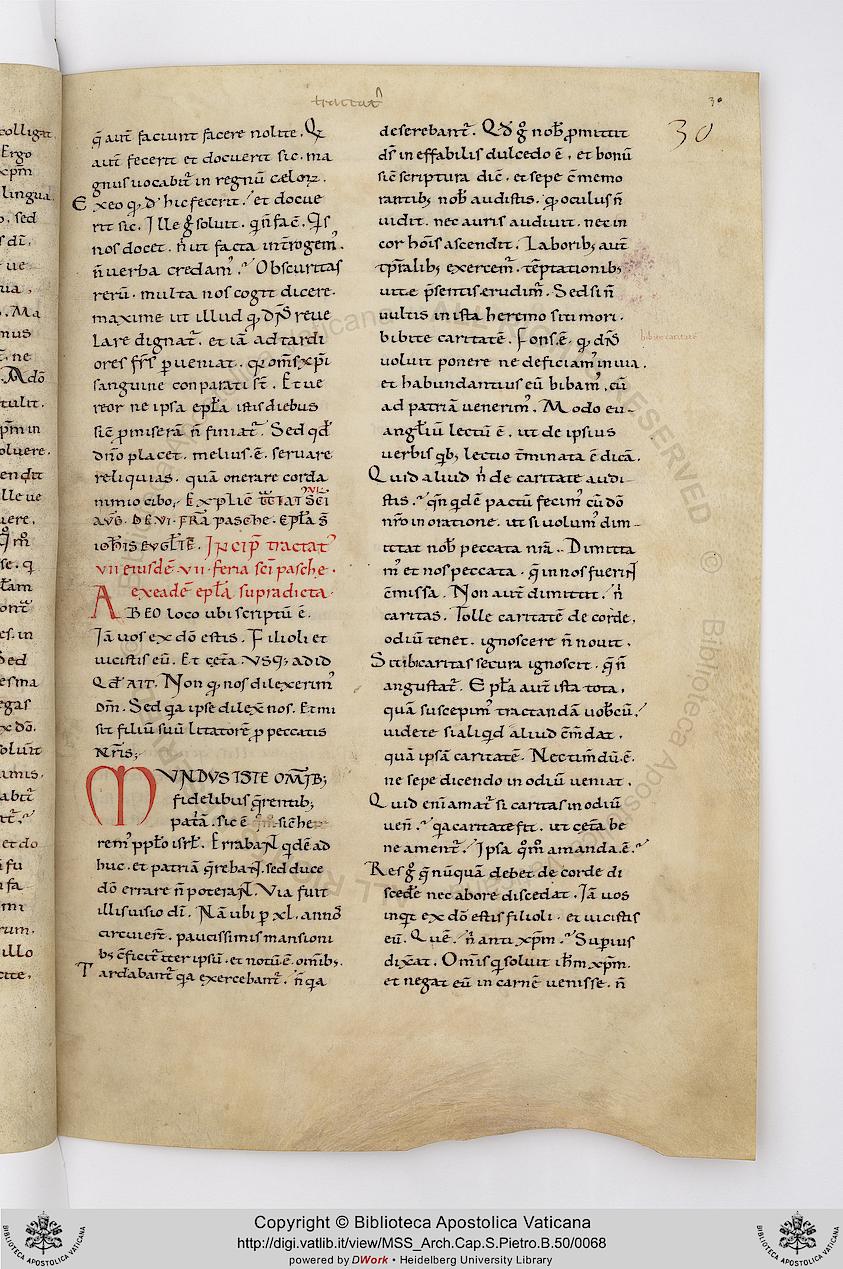 tractat᷒
30
30
q̄ aut̄ faciunt facere nolite. Q̄
aut̄ fecerit et docuerit sic. ma
gnus uocabit̄ in regnū cęlorꝝ.
Exeo qꝫ d̄ hic fecerit. et docue
rit sic. Ille g̊ soluit. qͥ n̄ fac̄. Qͥs
nos docet. n̄ ut facta int̄rogem᷒.
n̄ uerba credam᷒. Obscuritas
rerū. multa nos cogit dicere.
maxime ut illud qꝫ dn̄s reue
lare dignat᷒. et iā ad tardi
ores frs̄ ꝑueniat. qͥ om̄s xp̄i
sanguine conparati st̄. Et ue
reor ne ipsa epl̄a istis diebus
sic̄ ꝓmiserā n̄ finiat᷒. Sed qđ
dn̄o placet. melius. ē. seruare
reliquias. quā onerare corda
nimio cibo. Explic̄ tr̄tat᷒ VI sc̄i
AVḠ. DE VI. FR̄A pasche. Epl̄a S̄
IOH̄IS EVGL̄TĒ. Incip̄ tractat᷒
vii eiusdē. vii. feria sc̄i pasche.
ex eadē epl̄a supradicta.
ABEO loco ubi scriptū ē.
Iā uos ex dō estis. Filioli et
uicistis eū. Et cęta. VSQꝫ ad id
Qđ AIT. Non qꝫ nos dilexerim᷒
dm̄. Sed qa ipse dilexͭ nos. Et mi
sit filiū suū litatorē ꝓ peccatis
N̄RIS;
MVNDVS ISTE OM̄IBꝫ
fidelibus q̄rentibꝫ
pat͛ā. sic ē
rem᷒ ppl̄o isrl̄. Errabant qͥdē ad
huc. et patriā q̄rebant. sed duce
dō errare n̄ poterant. Via fuit
illis uisio dī. Nā ubi ꝑ xl. annos
circuier̄. paucissimis mansioni
bꝫ c̄ficit᷒ iter ipsū. et notū ē. om̄ibꝫ.
Tardabant᷒ qa exercebant᷒. n̄ qa
deserebant᷒. Qđ g̊ nob̄ ꝓmittit
ds̄ ineffabilis dulcedo ē. et bonū
sic̄ scriptura dic̄. et sepe c̄memo
rantibꝫ nob̄ audistis. qꝫ oculus n̄
uidit. nec auris audiuit. nec in
cor hōis ascendit. Laboribꝫ aut̄
tp̄ralibꝫ exercem᷒. tēptationibꝫ
uitę p̄sentis erudim᷒. Sed si n̄
uultis in ista heremo siti mori.
bibite caritatē. Fons. ē. qꝫ dn̄s
bibite caritatē
uoluit ponere ne deficiam᷒ in uia.
et habundantius eū bibam᷒. cū
ad patriā uenerim᷒. Modo eu-
angl̄iū lectū ē. ut de ipsius
uerbis qͥbꝫ lectio t̄minata ē dicā.
Quid aliud n̄ de caritate audi-
stis. qͥn qͥdē pactū fecim᷒ cū dō
nr̄o in oratione. ut si uolum᷒ dim-
ittat nob̄ peccata nr̄a. Dimitta
m᷒ et nos peccata. q̄ in nos fuerint
c̄missa. Non aut̄ dimittit. n̄
caritas. Tolle caritatē de corde.
odiū tenet. ignoscere n̄ nouit.
Si tibi caritas secura ignoscit. q̄ n̄
angustat᷒. Epl̄a aut̄ ista tota.
quā suscepim᷒ tractandā uob̄cū.
uidete si aliqͥd aliud c̄mdat.
quā ipsā caritatē. Nec timdū. ē.
ne sepe dicendo in odiū ueniat.
Quid eni amat᷒ si caritas in odiū
uen̄. qa caritate fit. ut cęta be
ne ament᷒. Ipsa q̊m᷒ amanda. ē.
Res g̊ q̄ nūquā debet de corde di
scedē nec ab ore discedat. Iā uos
inqͥt ex dō estis filioli. et uicistis
eū. Quē. n̄ anti xp̄m. Superius
dix͛at. Om̄is qͥ soluit ih̄m xp̄m.
et negat eū in carnē uenisse. n̄
Copyright © Biblioteca Apostolica Vaticana
http://digi.vatlib.it/view/MSS_Arch.Cap.S.Pietro.B.50/0068
powered by DWork • Heidelberg University Library